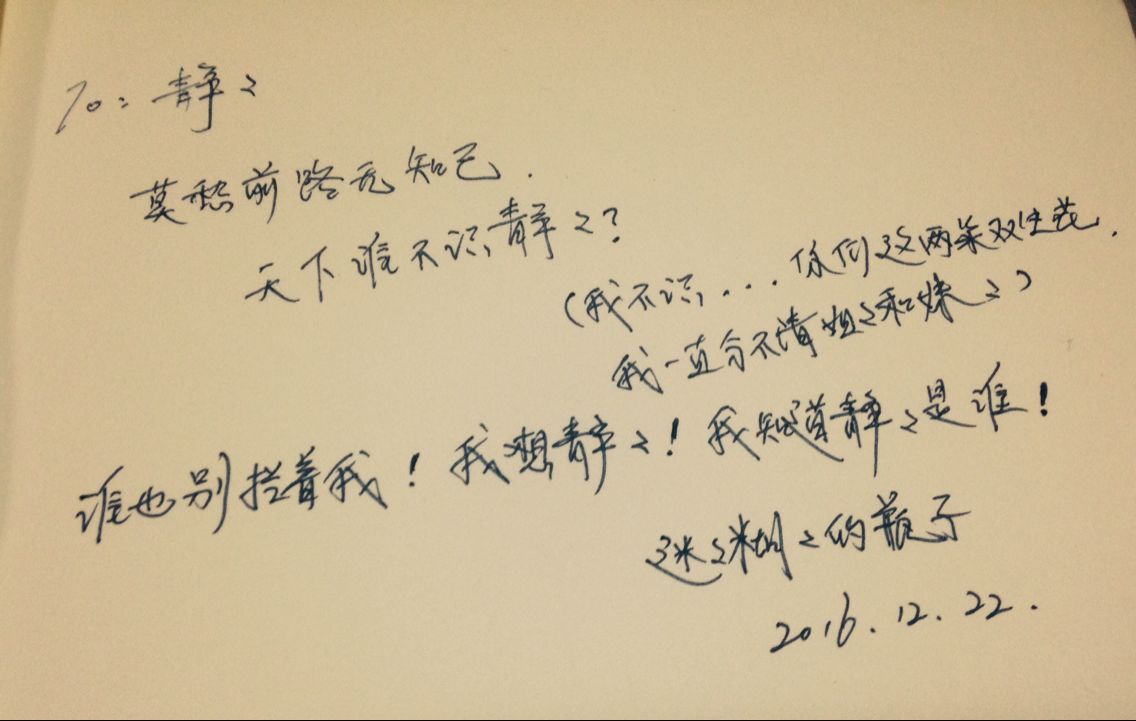 To：静々
莫愁前路无知己．
天下谁不识静々？
（我不识，...你们这两朵双生花．
我一直分不清姐々和妹々）
谁也别拦着我！我想静々！我知道静々是谁！
迷々糊々的瓶子
2016.12.22.